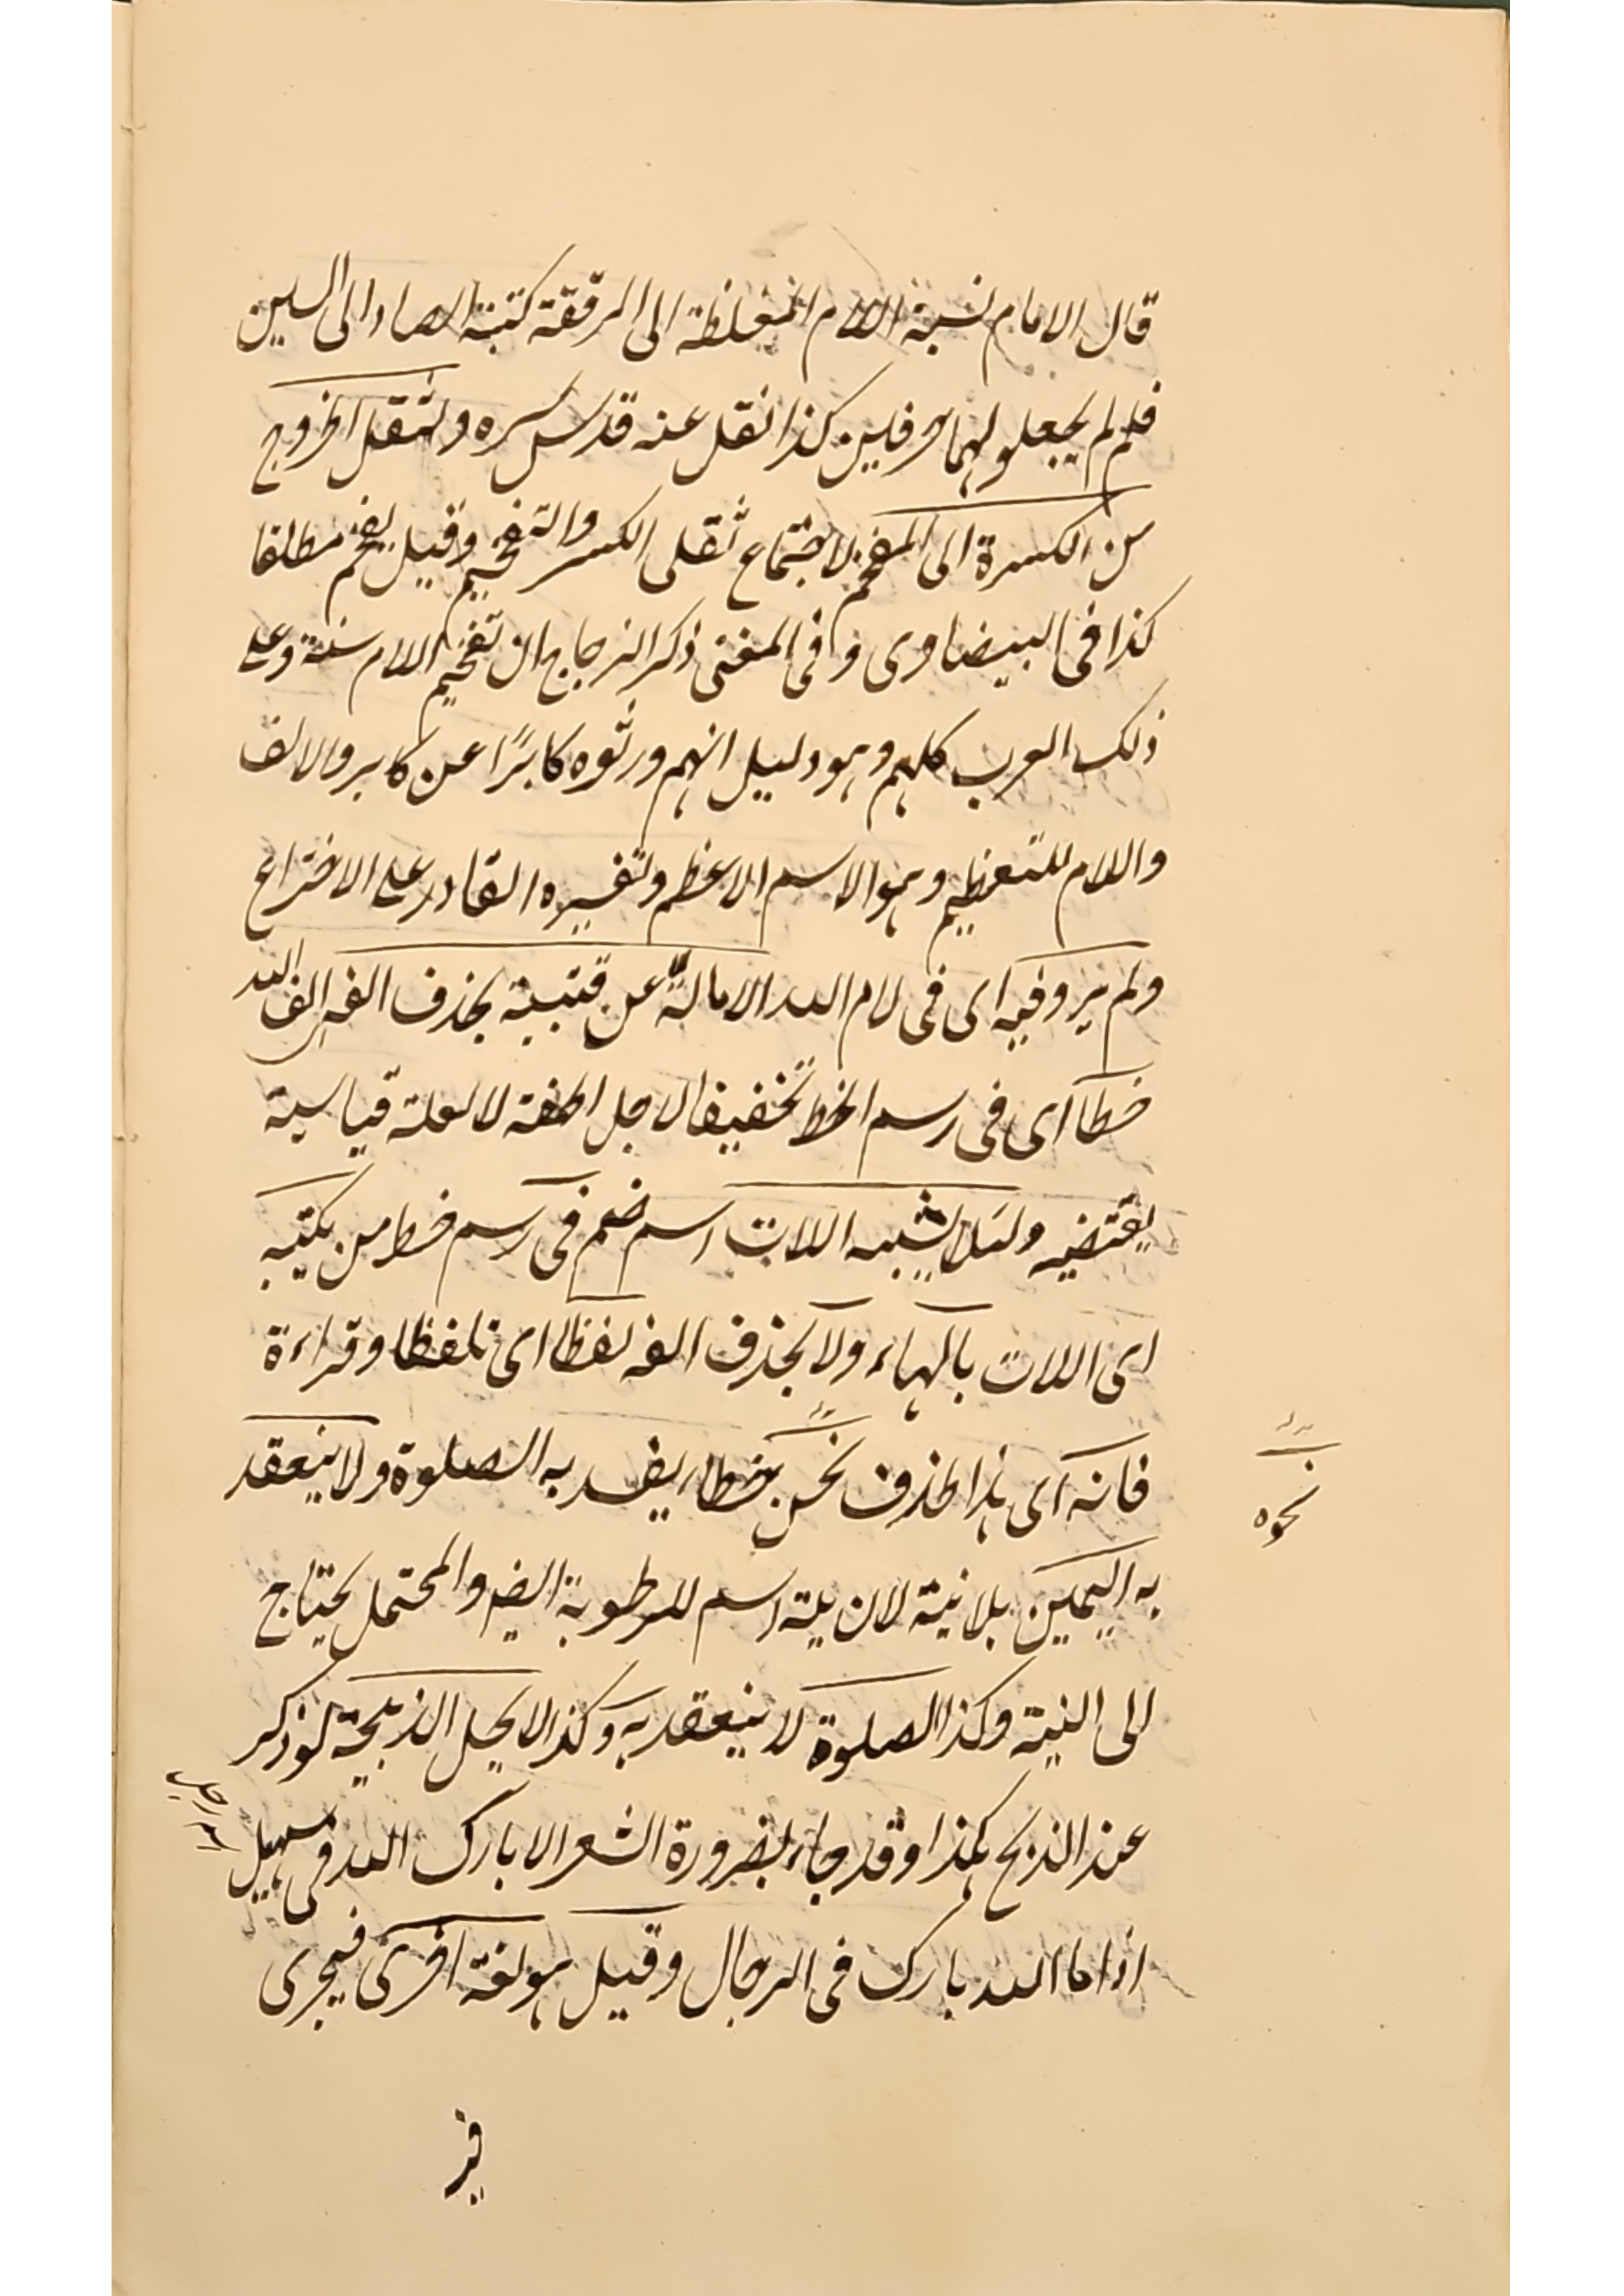 قال الامام نسبة اللام المغلظة الى المرققة كنسبة الصاد الى السين
فلم لم يجعلوهما حرفين كذا نقل عنه قدس سره ولثقل الخروج
من الكسرة الى المفخم لاجتماع ثقلى الكسر والتفخيم وقيل يفخم مطلقا
كذا فى البيضاوى وفى المغنى ذكر الزجاج ان تفخيم اللام سنة وعلى
ذلك العرب كلهم وهو دليل انهم ورثوه كابرًا عن كابر والالف
واللام للتعظيم وهو الاسم الاعظم وتفسيره القادر على الاختراع
ولم يرو فيه اى فى لام الله الامالة الا عن قتيبة بحذف الفه الف الله
خطا اى فى رسم الخط تخفيفا لاجل الخفة لا لعلة قياسية
يقتضيه ولئلا يشبه اللات اسم صنم فى رسم خط من يكتبه
اى اللات بالهاء ولا يحذف الفه لفظا اى تلفظا وقراءة
فانه اى هذا الحذف لحن خطاء يفسد به الصلوة ولا ينعقد
نحوه
به اليمين بلا نية لان بلة اسم للرطوبة ايضا والمحتمل يحتاج
الى النية وكذا الصلوة لا ينعقد به وكذا لا يحل الذبيحة لو ذكر
عند الذبح هكذا وقد جاء لضرورة الشعر الا بارك الله فى سهيل
اذا ما الله بارك فى الرجال وقيل هو لغة اخرى فيجرى
فى